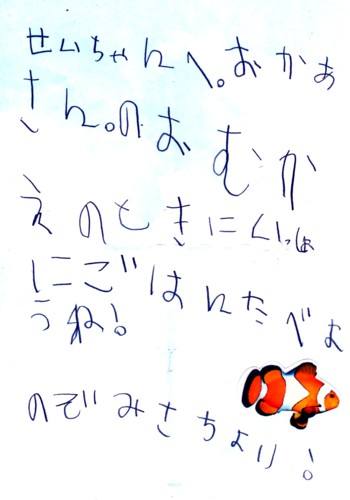 せいちゃんへ。おかあ
さん。のおむか
えのときにいっしょ
にごはんたべよ
うね!
のぞみさちより!